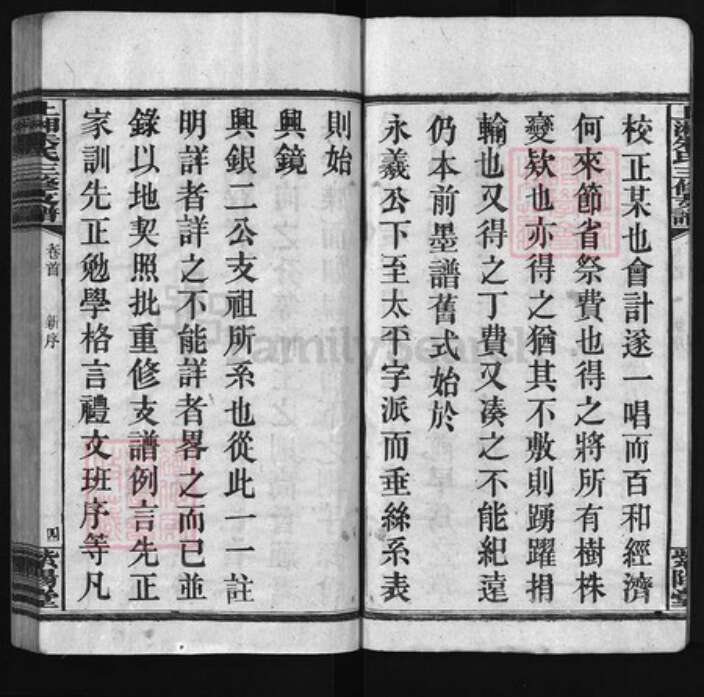 校正某也會計遂一唱而百和經濟
何來節省祭費也得之將所有樹株
變欵也亦得之猶其不敷則踴躍捐
輸也又得之丁費又凑之不能紀遠
仍本前墨譜舊式始於
永義公下至太平字派而垂絲系表
則始
興鏡
興銀二公支祖所系也從此一一註
明詳者詳之不能詳者畧之而已並
錄以地契照批重修支譜例言先正
家訓先正勉學格言禮文班序等凡
上湘朱氏三修支譜
卷首
新序
四
紫陽堂
FamilySearch